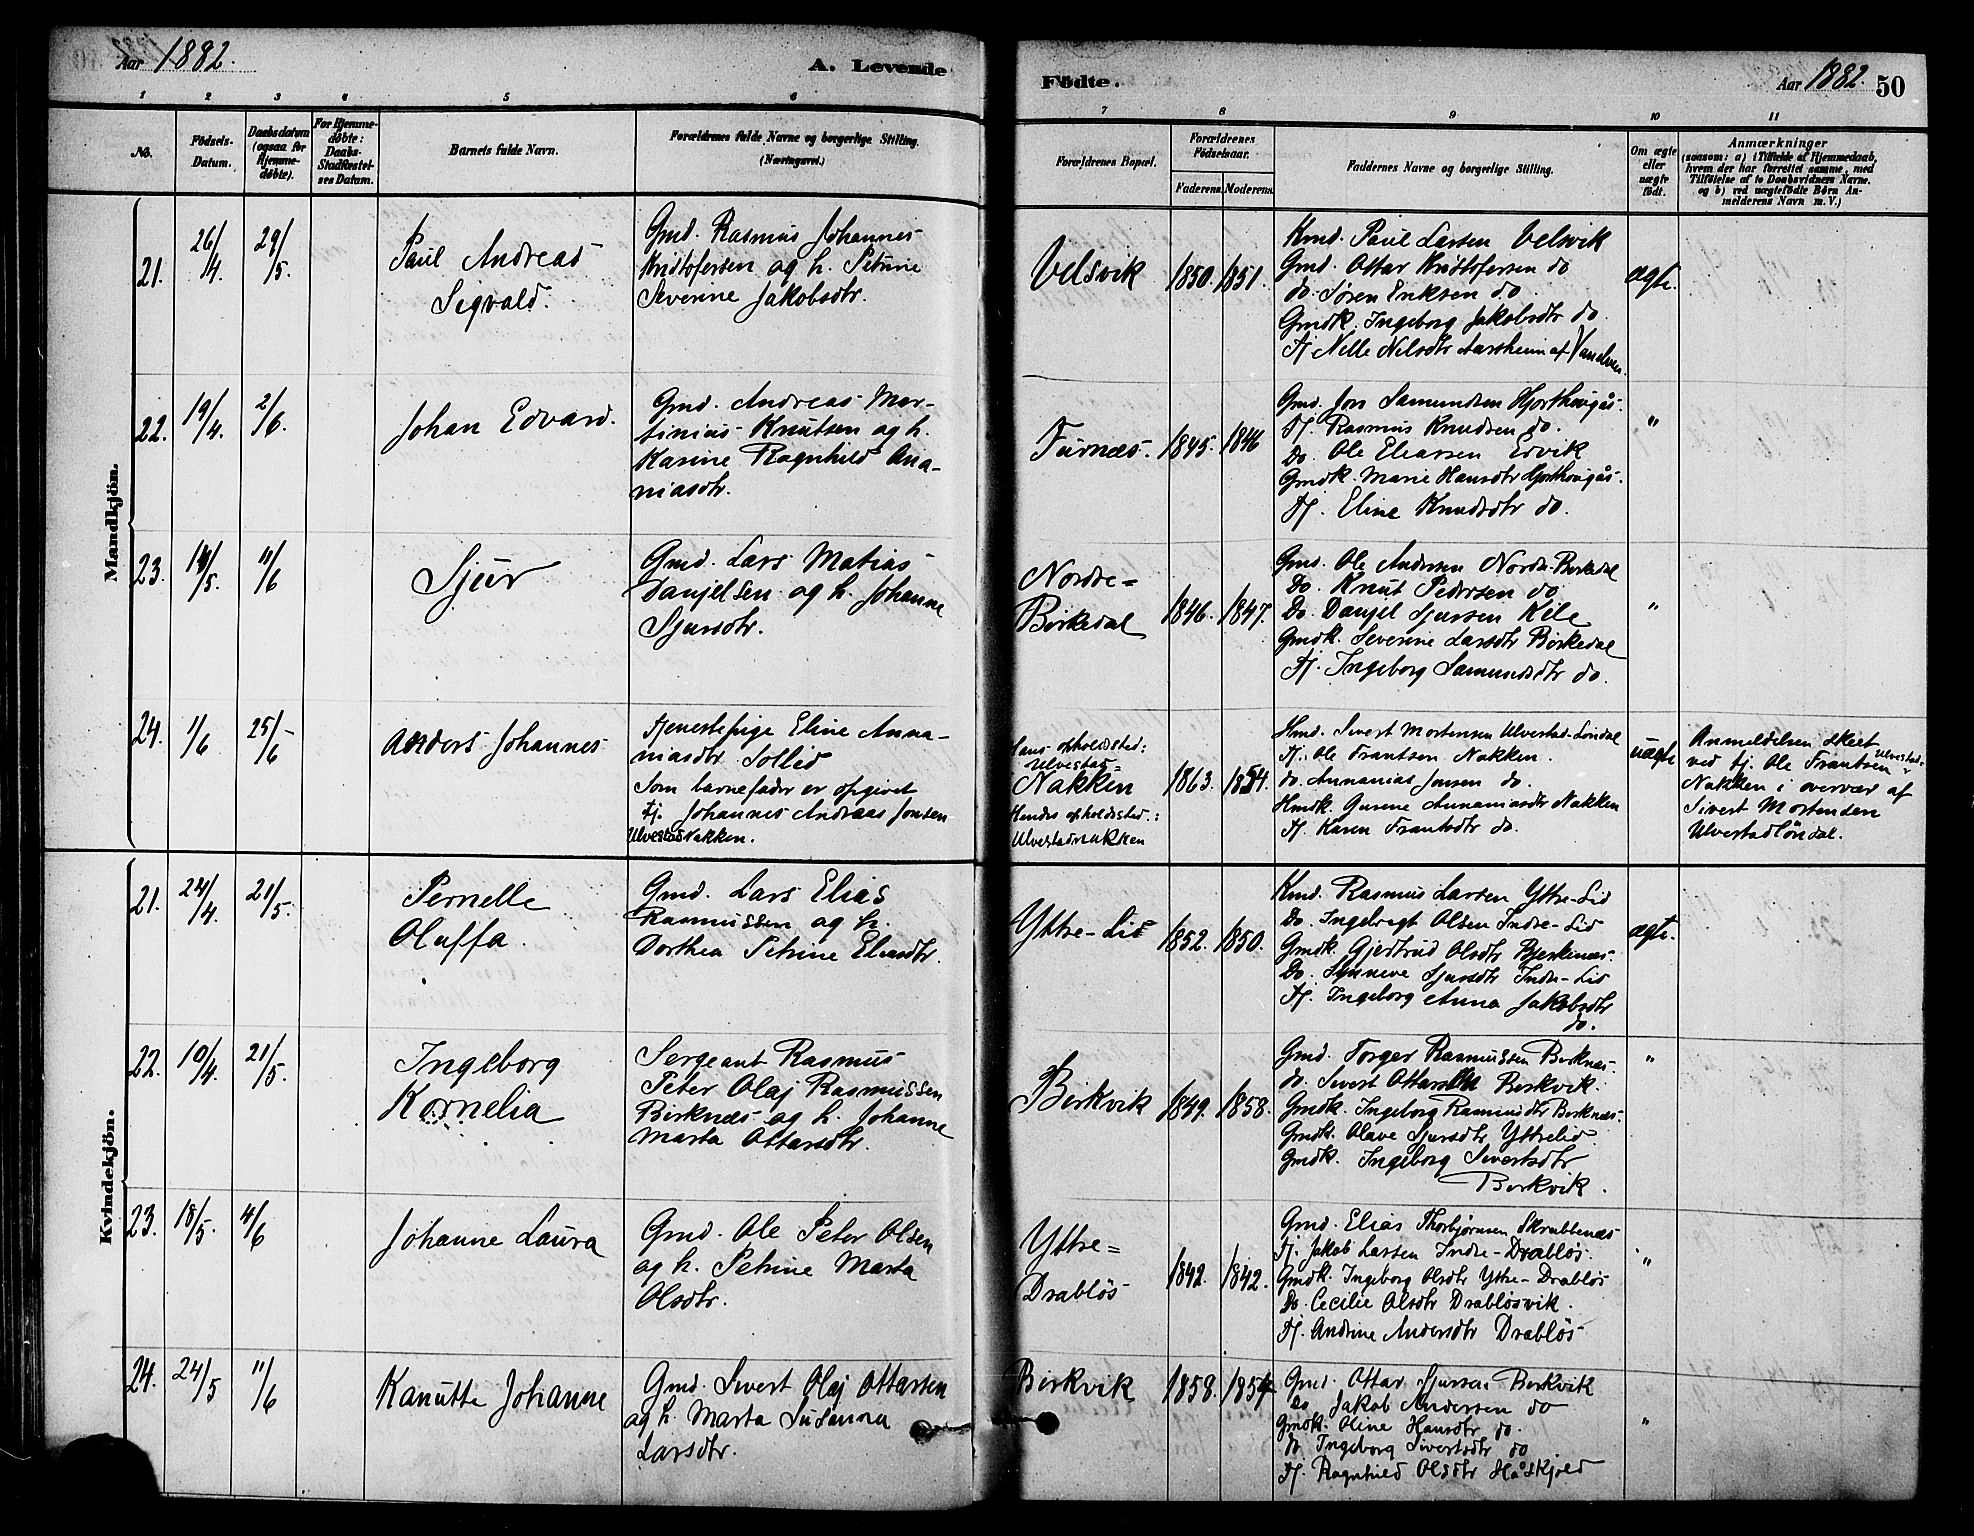 Aar 1882.
A. Levende
1 2 3 4 5 6
No.
Fødsels-
Datum.
Daabsdatum
(ogsaa for
Hjemme-
døbte).
For Hjemme-
døbte:
Daabs-
Stadfæstel-
ses Datum.
Barnets fulde Navn.
Forældrenes fulde Navne og borgerlige Stilling.
(Næringsvei.)
Mandkjön.
21.
26/4
29/5.
Paul Andreas
Sigvald.
Gmd. Rasmus Johannes
Kristofersen og h. Petrine
Severine Jakobsdtr.
22.
19/4.
2/6.
Johan Edvard.
Gmd. Andreas Mar-
tinius Knutsen og h.
Karine Ragnhild Ana-
niasdtr.
23.
/5.
11/6
Sjur
Gmd. Lars Matias
Danjelsen og h. Johanne
Sjursdtr.
24.
1/6
25/6
Anders Johannes
Tjenestepige Eline Anna-
niasdtr Sollid
Som barnefader er opgivet
Tj. Johannes Andraas Jonsen
Ulvestad Nakken.
Kvindekjön.
21.
24/4.
21/5.
Pernelle
Oluffa.
Gmd. Lars Elias
Rasmussen og h.
Dorthea Petrine Eliasdtr.
22.
10/4.
21/5.
Ingeborg
Kornelia
Sergeant Rasmus
Peter Olaj Rasmussen
Birknæs og h. Johanne
Marta Ottarsdtr.
23.
18/5.
4/6
Johanne Laura
Gmd. Ole Peter Olsen
og h. Petrine Marta
Olsdtr.
24.
24/5
11/6
Kanutte Johanne
Gmd. Sivert Olaj Ottarsen
og h. Marta Susanna
Larsdtr.
Födte.
Aar 1882.
50
7 8 9 10 11
Forældrenes Bopæl.
Forældrenes
Fødselsaar.
Faderens. Moderens.
Faddernes Navne og borgerlige Stilling.
Om ægte
eller
uægte
født.
Anmærkninger
(saasom: a) i Tilfælde af Hjemmedaab,
hvem der har forrettet samme, med
Tilføielse af to Daabsvidners Navne.
og b) ved uægtefødte Börn An-
melderens Navn m. V.)
Velsvik
1850.
1851.
Kmd. Paul Larsen Velsvik
Gmd. Ottar Kristofersen do
do. Søren Eriksen do.
Gmdk. Ingeborg Jakobsdtr do.
Tj Nelle Nilsdtr Aarsheim af Vanelven.
ægte.
Furnæs.
1845.
1846
Gmd. Jon Samundsen Hjorthougås.
Tj. Rasmus Knudsen do.
Do. Ole Eliassen Ervik
Gmdk. Marie Hansdtr Hjorthougås.
Tj. Eline Knudsdtr do.
"
Nordre=
Birkedal
1846.
1847.
Gmd. Ole Andersen Nordre-Birkedal
Do. Knut Pedersen do
Do. Danjel Sjursen Kile
Gmdk. Severine Larsdtr Birkedal
Tj. Ingeborg Samundsdtr do.
"
Hans opholdssted:
Ulvestad=
Nakken
Hendes opholdssted:
Ulvestadnakken
1863.
1854.
Hmd. Sivert Mortensen Ulvestad-Løndal
Tj. Ole Frantsen Nakken.
do. Annanias Jonsen do.
Hmdk. Gurine Annaniasdtr Nakken
Tj. Karen Frantsdtr do.
uægte
Anmeldelsen skeet
ved tj. Ole Frantsen Ulvestad-
Nakken i overvær af
Sivert Mortensen
Ulvestadløndal.
Yttre-Lid
1852.
1850.
Kmd. Rasmus Larsen Yttre-Lid
Do. Ingebrigt Olsen Indre-Lid
Gmdk. Gjertrud Olsdtr Bjerkenæs.
Do. Synneve Sjursdtr Indre-Lid
Tj. Ingeborg Anna Jakobsdtr
do.
ægte.
Birkvik
1849.
1858.
Gmd. Torger Rasmussen Birknæs.
do. Sivert Ottarsen Birkvik.
Gmdk. Ingeborg Rasmusdtr Birknæs.
Gmdk. Olave Sjursdtr Yttrelid
Gmdk. Ingeborg Sivertsdtr
Birkvik.
"
Yttre=
Drabløs
1842.
1842.
Gmd. Elias Thorbjørnsen Skrubbenæs
Tj. Jakob Larsen Indre-Drabløs.
Gmdk. Ingeborg Olsdtr Yttre-Drabløs
Do. Cecilie Olsdtr Drabløsvik.
Tj. Andrine Andersdtr Drabløs
"
Birkvik
1858.
1854
Gmd. Ottar Sjursen Birkvik
Do Jakob Andersen do
Gmdk. Oline Hansdtr do.
do Ingeborg Sivertsdtr do
Tj. Ragnhild Olsdtr Håskjold
"